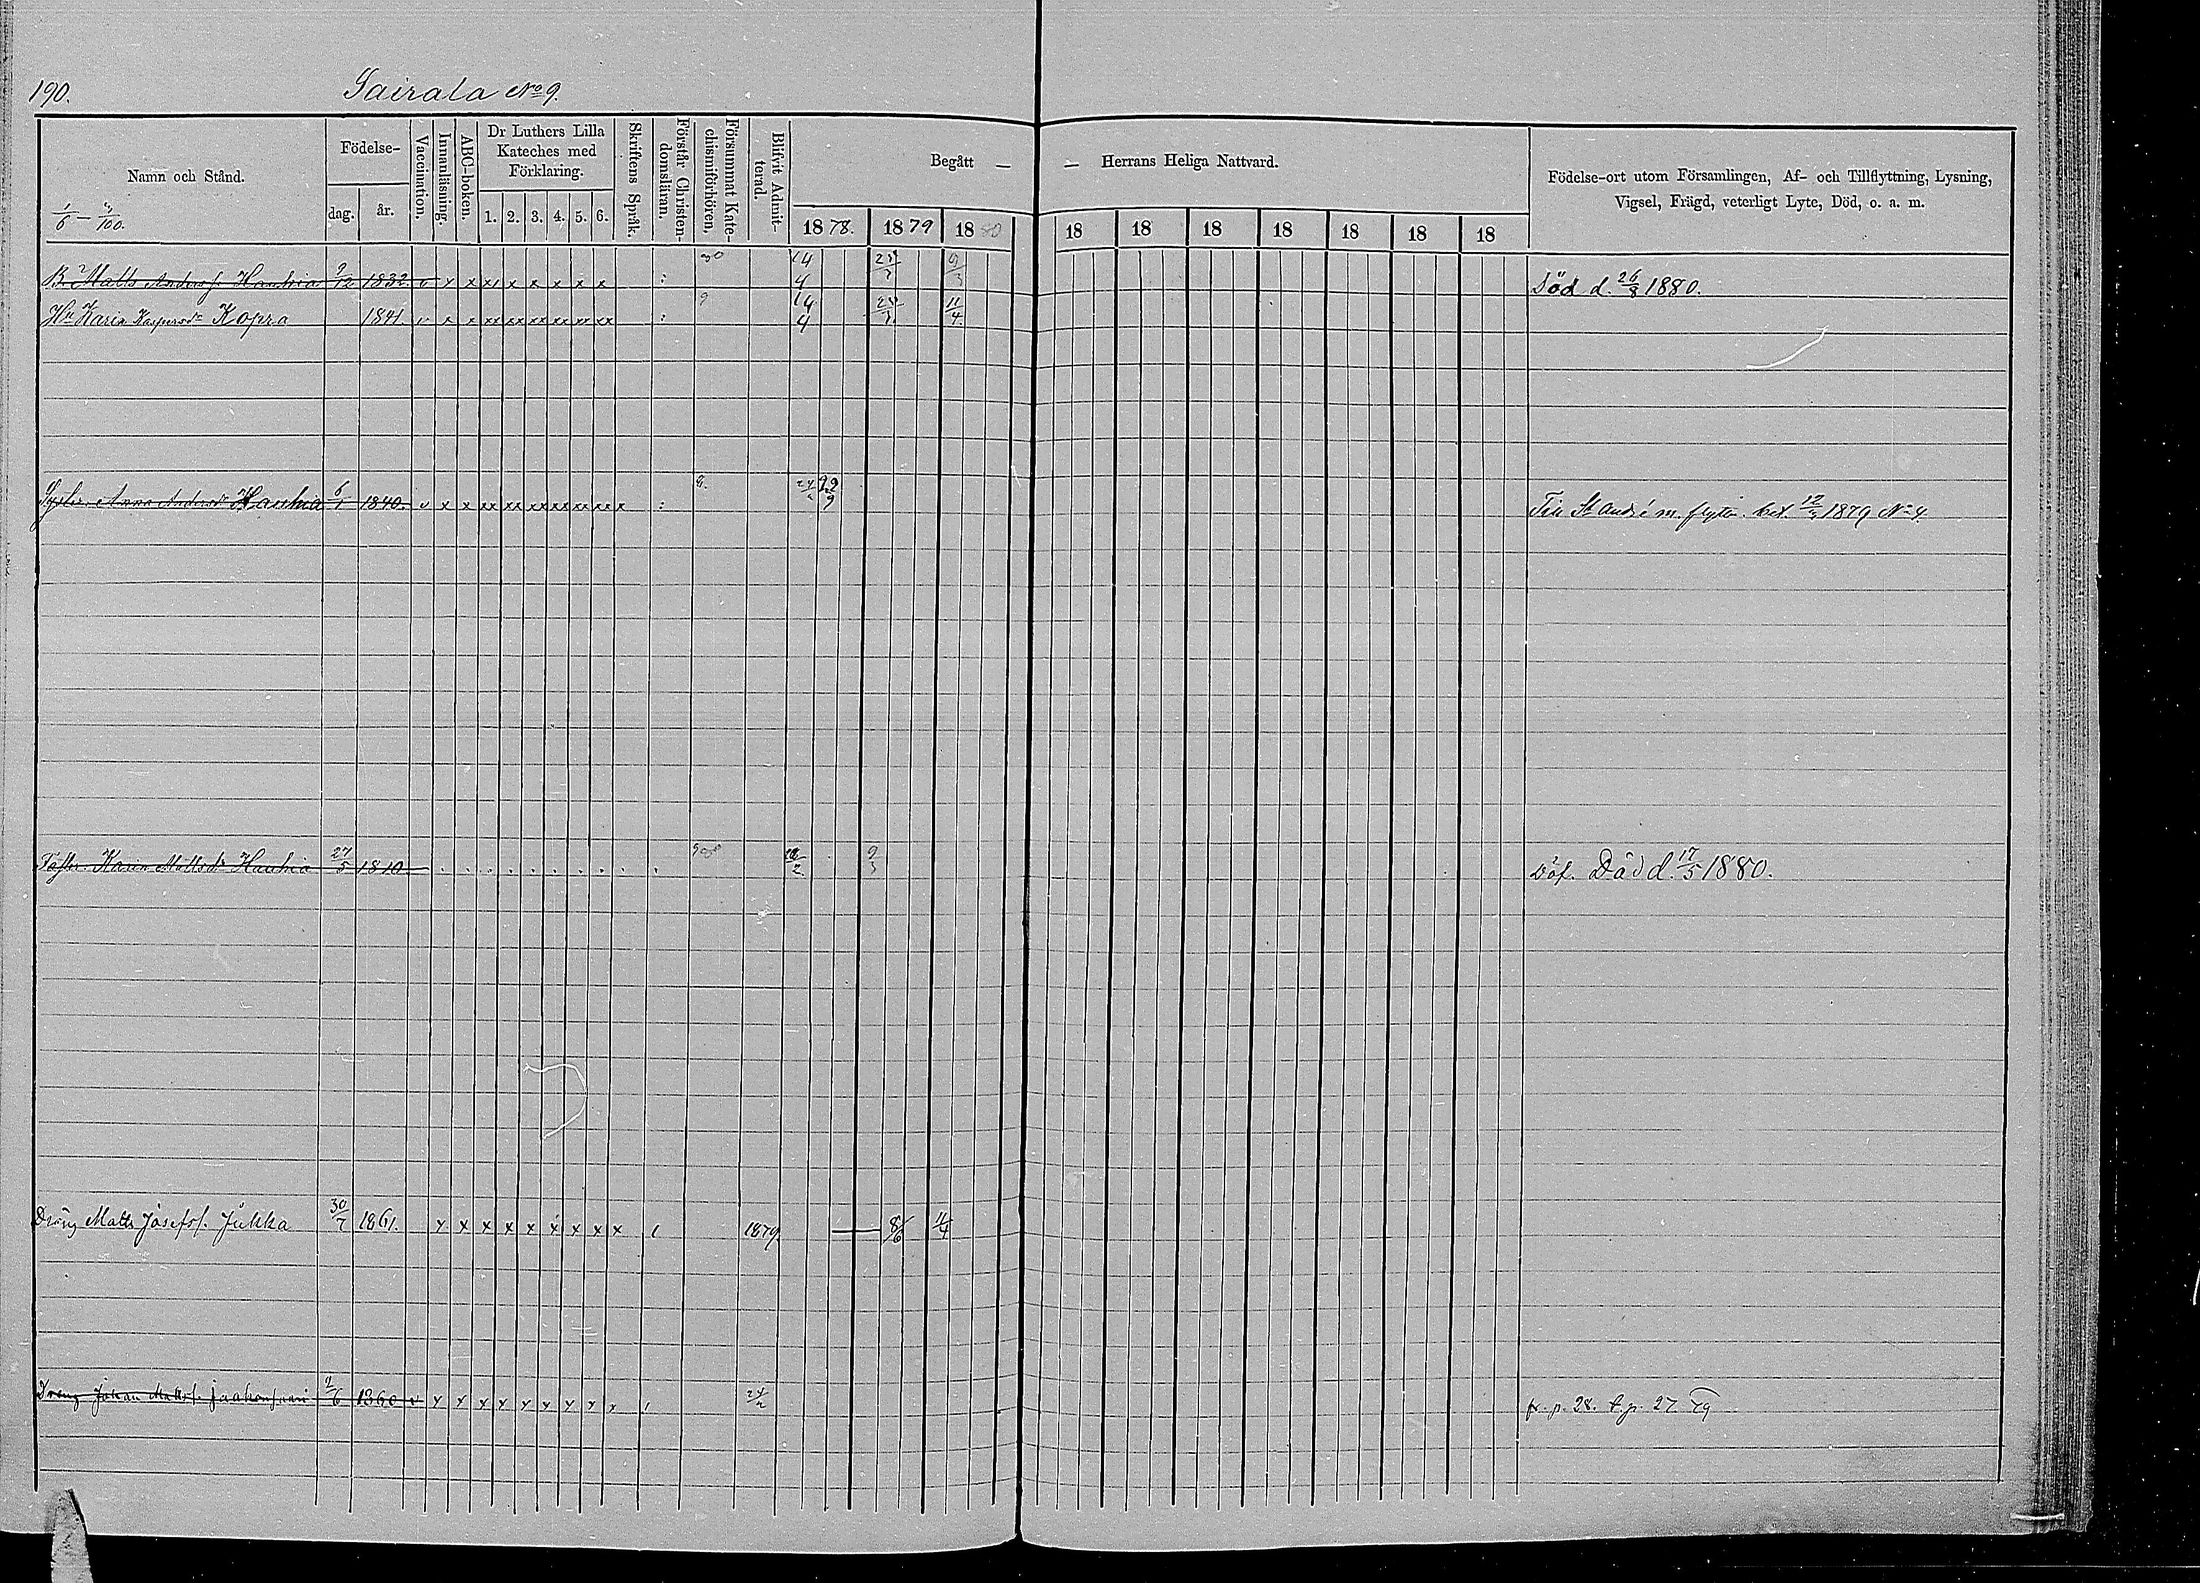 190. Sairala No 9.
Namn och Stånd.
Födelse-
dag. år.
Vaccination.
Innanläsning.
ABC-boken.
Dr Luthers Lilla
Kateches med
Förklaring.
1. 2. 3. 4. 5. 6.
Skriftens Språk.
Förstår Christen-
domsläran.
Försummat Kate-
chismiförhören,
Blifvit Admit-
terad.
Begått — — Herrans Heliga Nattvard.
1878. 1879 1880 18 18 18 18 18 18 18
Födelse-ort utom Församlingen, Af- och Tillflyttning, Lysning,
Vigsel, Frägd, veterligt Lyte, Död, o. a. m.
B. Matts Anderss. Hauhia 9/12 1832. v x x xx x x x x x : 14/4 9/3 Död d. 26/8 1880.
Hu Karin Kaspersdr Kopra 1841. v x x xx xx xx xx xx xx : 14/4 11/4
Syster Anna Andersdr Hauhia 6/1 1840. v x x xx xx xx xx xx xx x : Till St Andrè m. flyttn. bet. 1879 No 4.
Faster Karin Mattsdr Hauhia 27/5 1810 Död d. 17/5 1880.
Dräng Matts Josefss. Jukka 30/7 1861. x x x x x x x x x 1879 8/6 11/4
Dräng Johan Mattss. 2/6 1860 v x x x x x x x x x fr. p. 28. t. p. 27 79